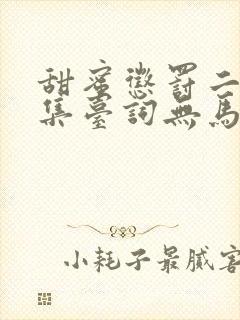 甜蜜懲罰二
集臺詞無馬
小耗子最膩害